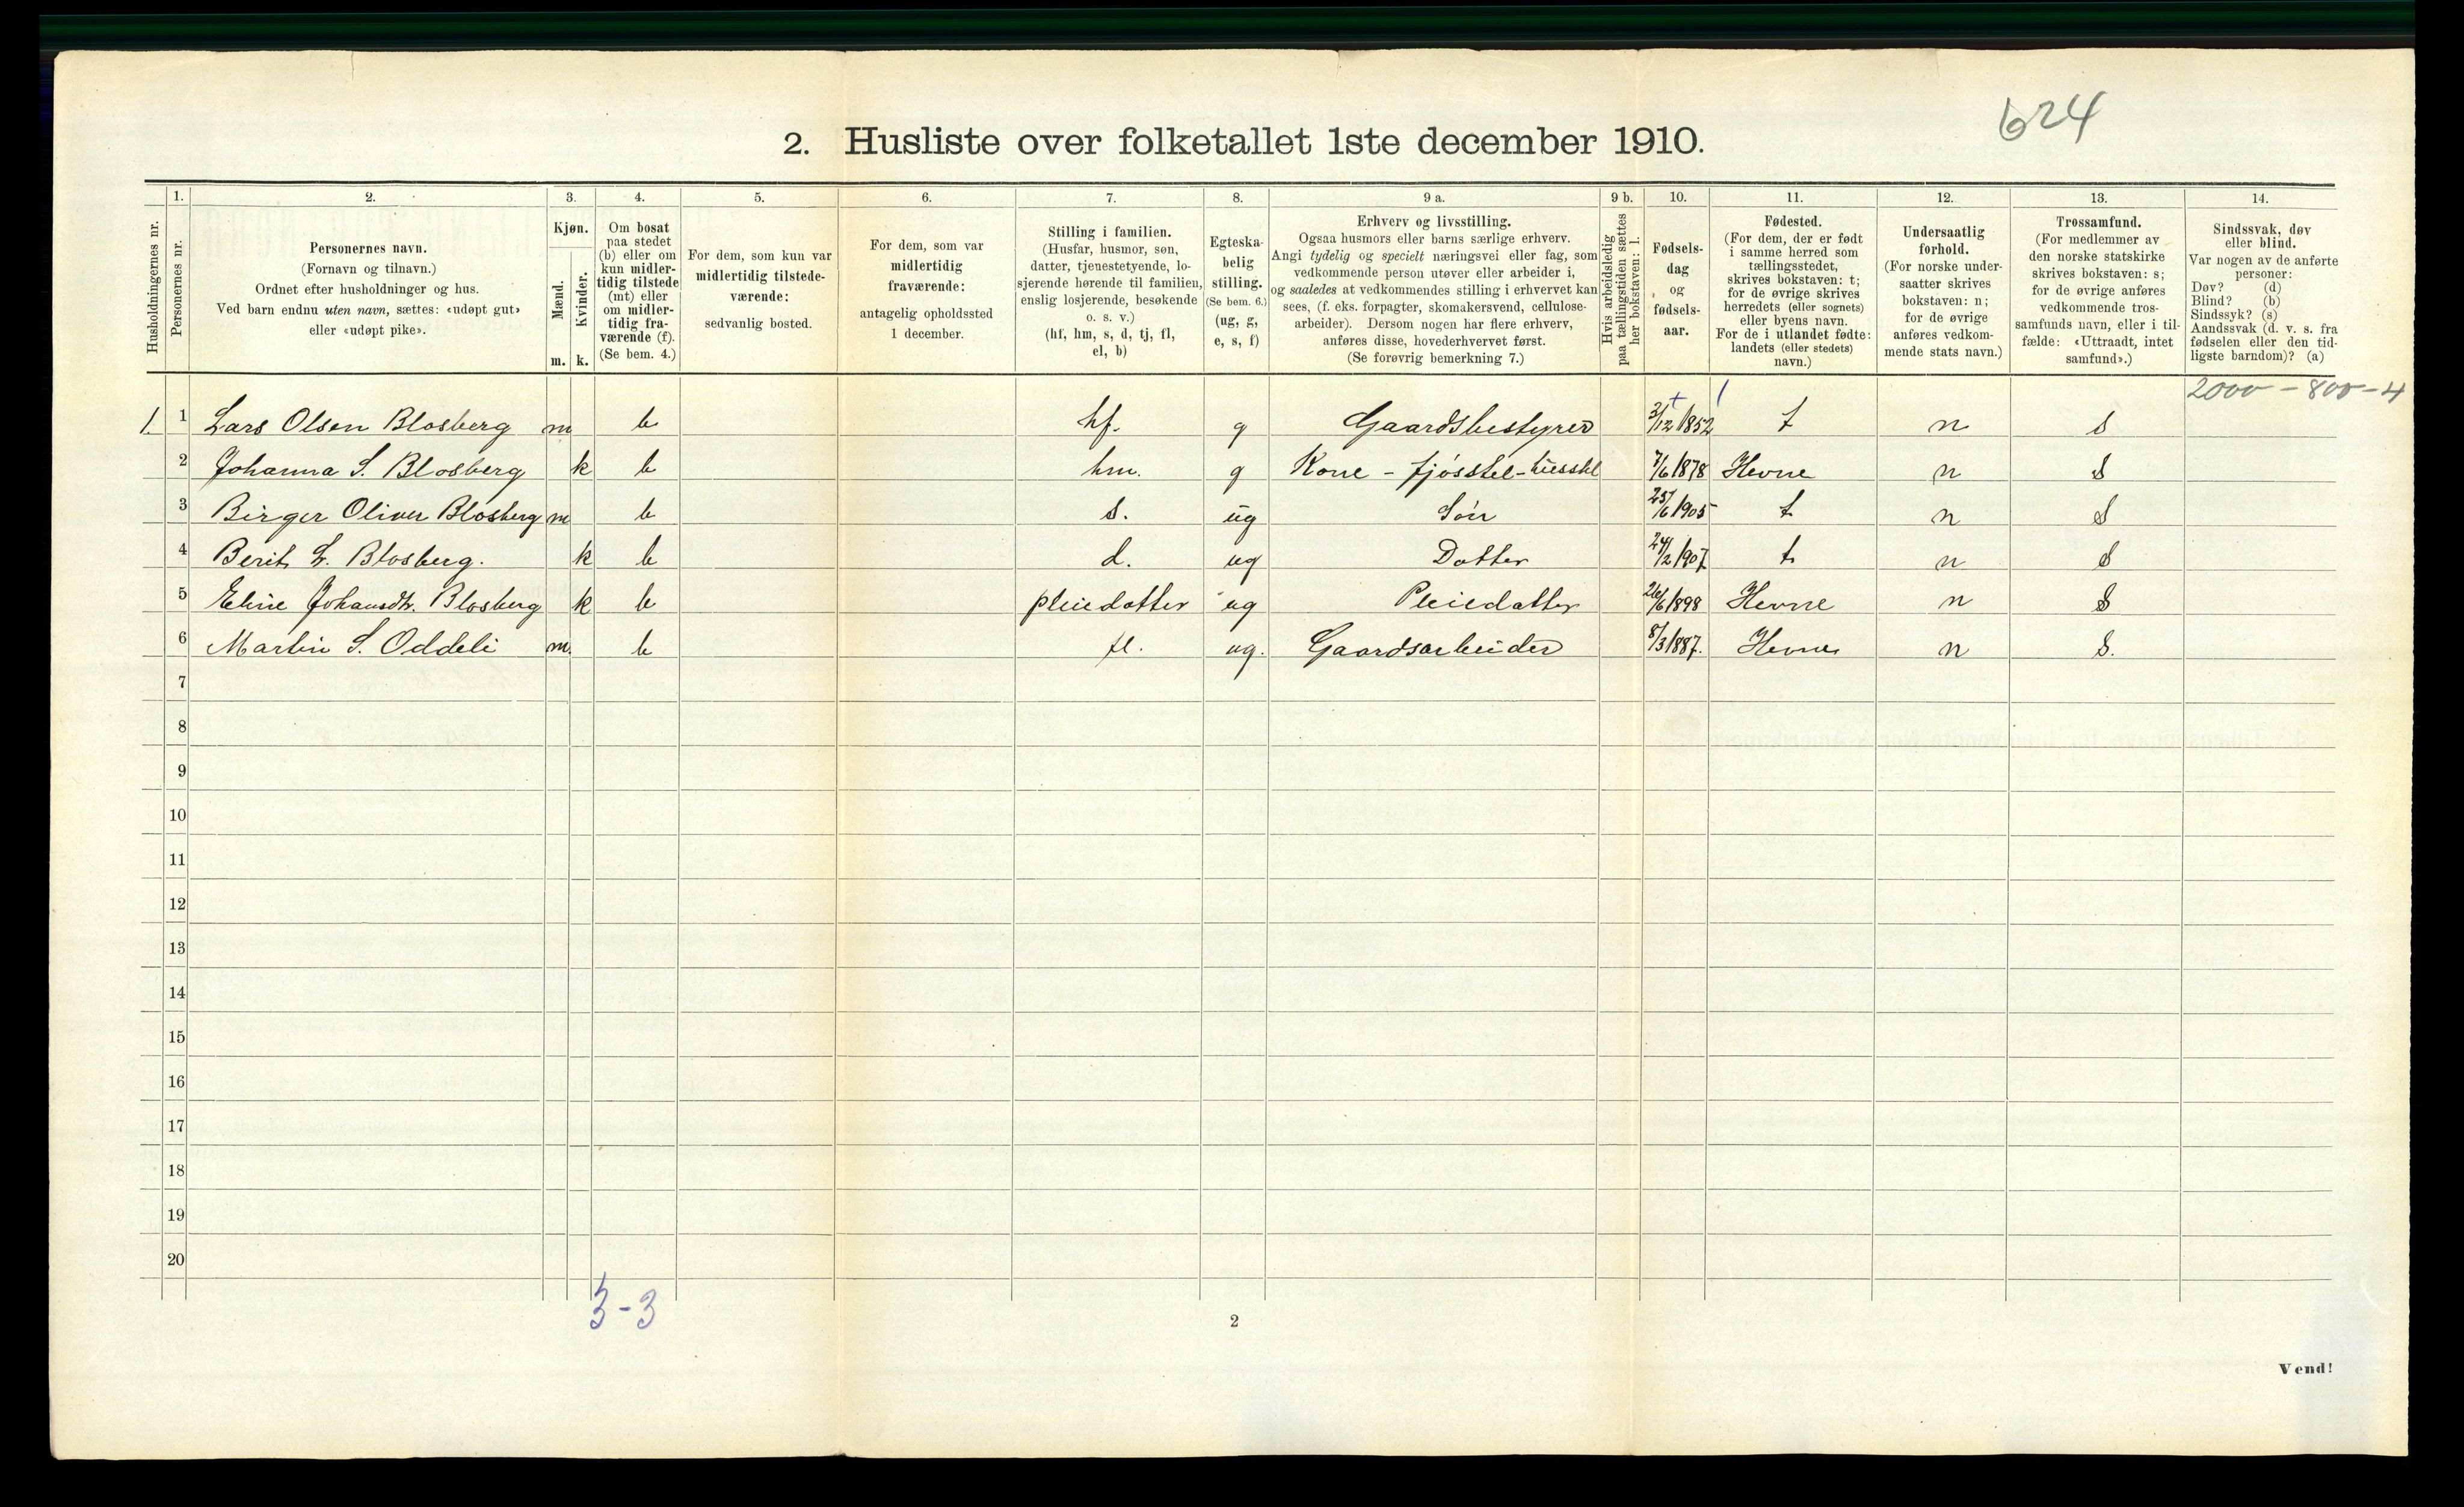 624
2. Husliste over folketallet 1ste december 1910.
1. 2. 3. 4. 5. 6. 7. 8. 9 a. 9 b. 10. 11. 12. 13. 14.
Husholdningernes nr.
Personernes nr.
Personernes navn.
(Fornavn og tilnavn.)
Ordnet efter husholdninger og hus.
Ved barn endnu uten navn, sættes: «udøpt gut»
eller «udøpt pike».
Kjøn.
Mænd.
m.
Kvinder.
k.
Om bosat
paa stedet
(b) eller om
kun midler-
tidig tilstede
(mt) eller
om midler-
tidig fra-
værende (f).
(Se bem. 4.)
For dem, som kun var
midlertidig tilstede-
værende:
sedvanlig bosted.
For dem, som var
midlertidig
fraværende:
antagelig opholdssted
1 december.
Stilling i familien.
(Husfar, husmor, søn,
datter, tjenestetyende, lo-
sjerende hørende til familien,
enslig losjerende, besøkende
o. s. v.)
(hf, hm, s, d, tj, fl,
el, b)
Egteska-
belig
stilling.
(Se bem. 6.)
(ug, g,
e, s, f)
Erhverv og livsstilling.
Ogsaa husmors eller barns særlige erhverv.
Angi tydelig og specielt næringsvei eller fag, som
vedkommende person utøver eller arbeider i,
og saaledes at vedkommendes stilling i erhvervet kan
sees, (f. eks. forpagter, skomakersvend, cellulose-
arbeider). Dersom nogen har flere erhverv,
anføres disse, hovederhvervet først.
(Se forøvrig bemerkning 7.)
Hvis arbeidsledig
paa tællingstiden sættes
her bokstaven: l.
Fødsels-
dag
og
fødsels-
aar.
Fødested.
(For dem, der er født
i samme herred som
tællingsstedet,
skrives bokstaven: t;
for de øvrige skrives
herredets (eller sognets)
eller byens navn.
For de i utlandet fødte:
landets (eller stedets)
navn.)
Undersaatlig
forhold.
(For norske under-
saatter skrives
bokstaven: n;
for de øvrige
anføres vedkom-
mende stats navn.)
Trossamfund.
(For medlemmer av
den norske statskirke
skrives bokstaven: s;
for de øvrige anføres
vedkommende tros-
samfunds navn, eller i til-
fælde: «Uttraadt, intet
samfund».)
Sindssvak, døv
eller blind.
Var nogen av de anførte
personer:
Døv? (d)
Blind? (b)
Sindssyk? (s)
Aandssvak (d. v. s. fra
fødselen eller den tid-
ligste barndom)? (a)
2000 - 800 - 4
1. 1 Lars Olsen Blosberg m b hf. g Gaardsbestyrer 3/12 1852 t n s
2 Johanna S. Blosberg k b hm. g Kone - fjósstel - husstel 7/6 1878 Hevne n s
3 Birger Oliver Blosberg m b s. ug Sön 25/6 1905 t n s
4 Berit L. Blosberg. k b d. ug Datter 24/2 1907 t n s
5 Eline Johansdtr. Blosberg k b pleiedatter ug Pleiedatter 26/6 1898 Hevne n s
6 Martin S. Oddeli m. b fl. ug. Gaardsarbeider 8/3 1887. Hevne n s.
7
8
9
10
11
12
13
14
15
16
17
18
19
20
3-3
2
Vend!